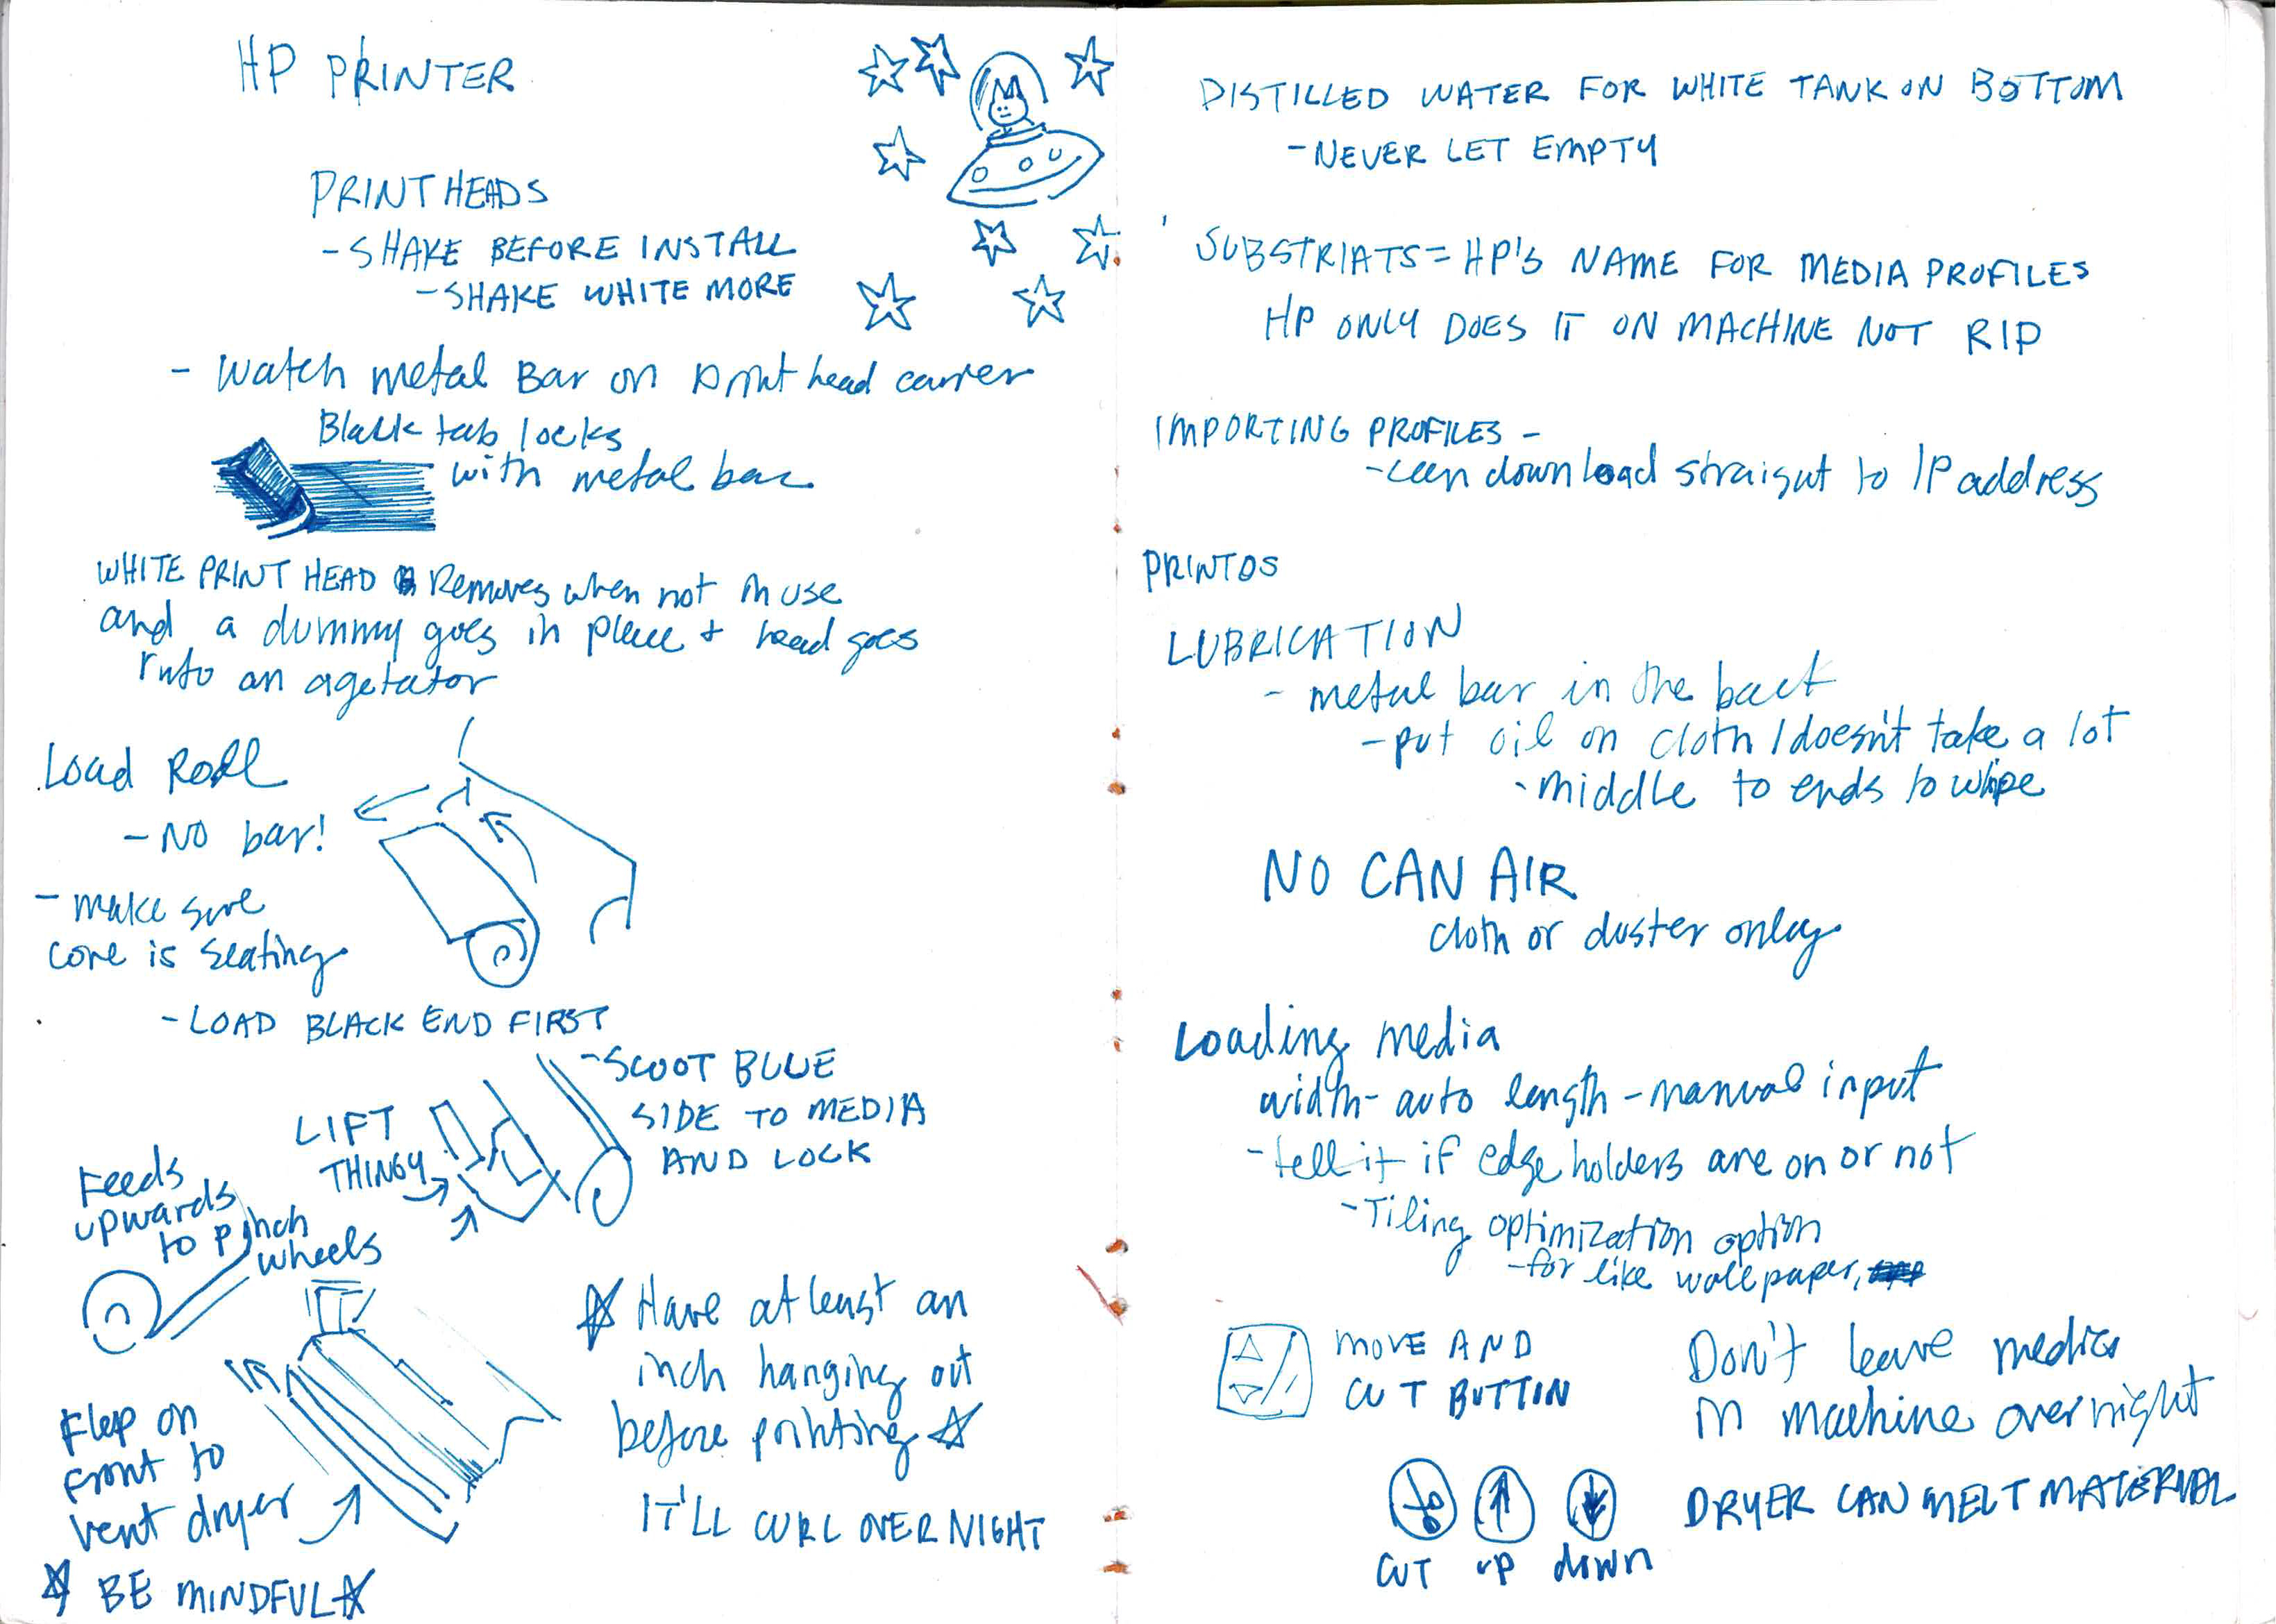 HP PRINTER
PRINT HEADS
- SHAKE BEFORE INSTALL
- SHAKE WHITE MORE
- Watch metal Bar on print head carrier
Black tab locks
with metal bar
WHITE PRINT HEAD Removes when not in use
and a dummy goes in place + head goes
into an agetator
Load Roll
- NO bar!
- make sure
core is seating
- LOAD BLACK END FIRST
- SCOOT BLUE
SIDE TO MEDIA
AND LOCK
LIFT
THINGY
Feeds
upwards
to pinch
wheels
Flap on
front to
vent dryer
☆ BE MINDFUL ☆
☆ Have at least an
inch hanging out
before printing ☆
IT'LL CURL OVERNIGHT
DISTILLED WATER FOR WHITE TANK ON BOTTOM
- NEVER LET EMPTY
SUBSTRIATS = HP'S NAME FOR MEDIA PROFILES
HP ONLY DOES IT ON MACHINE NOT RIP
IMPORTING PROFILES -
- can download straigut to IP address
PRINTOS
LUBRICATION
- metal bar in the back
- put oil on cloth / doesn't take a lot
- middle to ends to wipe
NO CAN AIR
cloth or duster only
Loading media
width - auto length - manual input
- tell it if edge holders are on or not
- Tiling optimization option
- for like wallpaper,
MOVE AND
CUT BUTTIN
CUT up down
Don't leave media
in machine overnight
DRYER CAN MELT MATERIAL